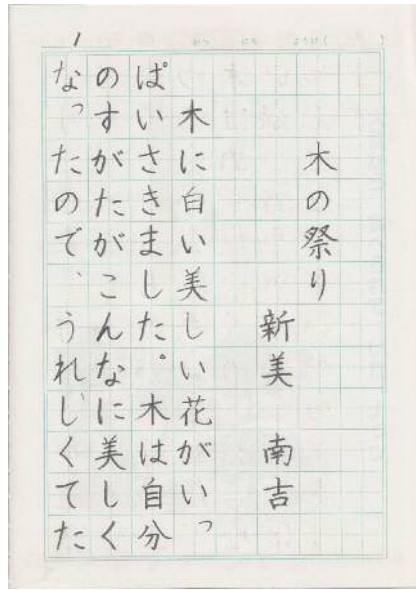 1
木の祭り
新美　南吉
木に白い美しい花がいっ
ぱいさきました。木は自分
のすがたがこんなに美しく
なったので、うれしくてた